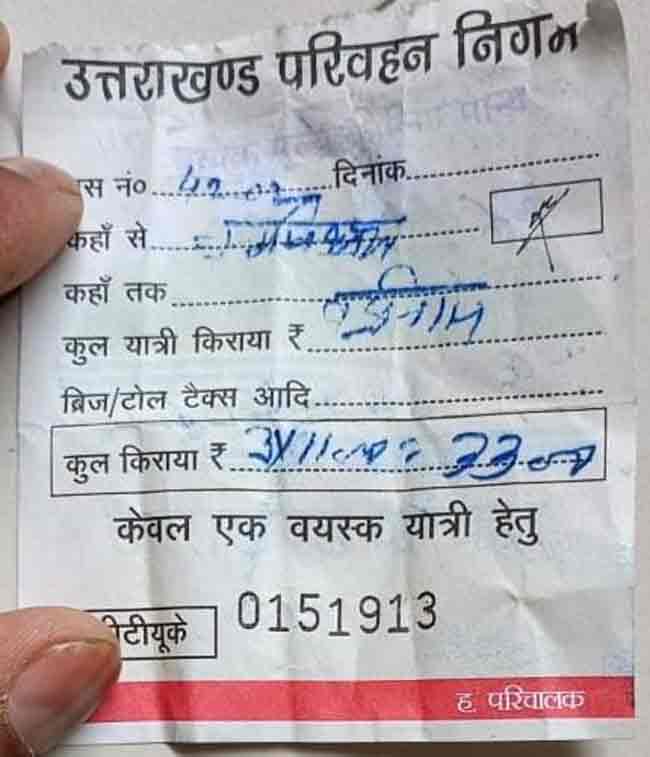 उत्तराखण्ड परिवहन निगम
बस नं० ............ दिनांक............
कहाँ से ............
कहाँ तक ............
कुल यात्री किराया ₹ ............
ब्रिज/टोल टैक्स आदि............
कुल किराया ₹ 3X1100 = 3300
केवल एक वयस्क यात्री हेतु
टीयूके 0151913
ह. परिचालक